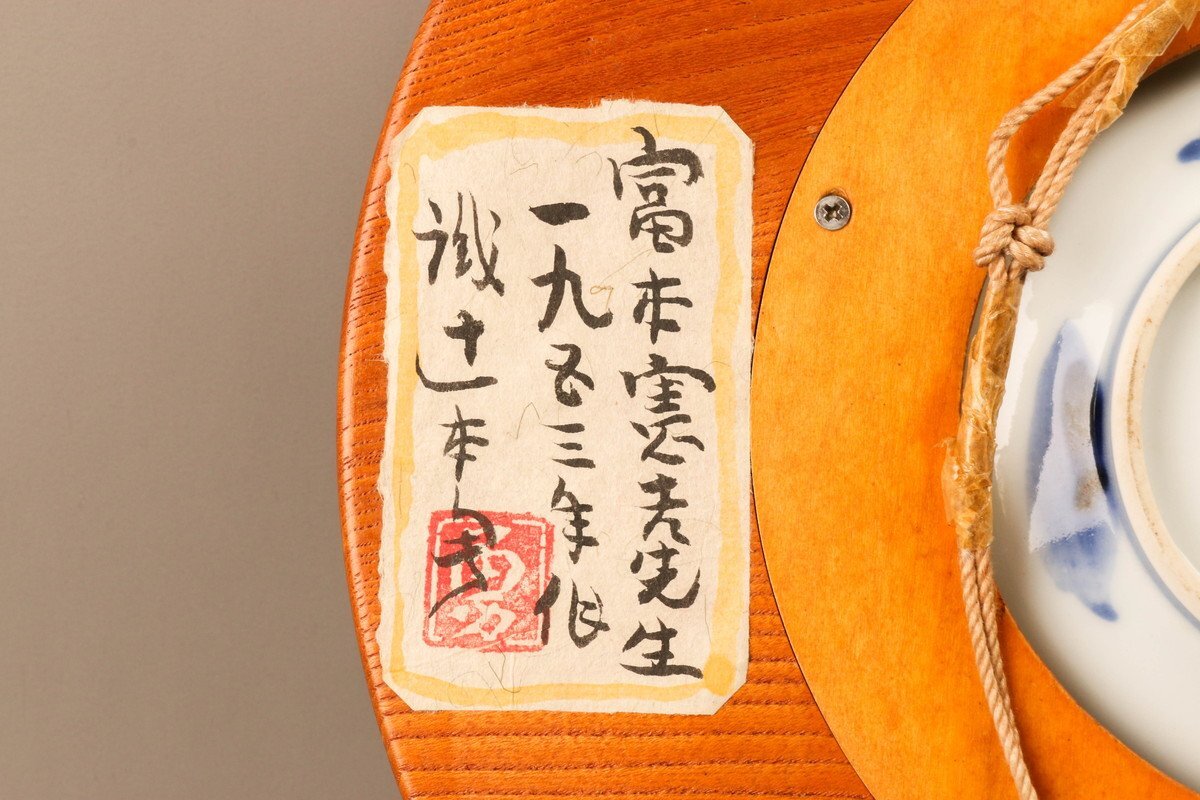 富本憲吉先生
一九五三年作
識辻本勇